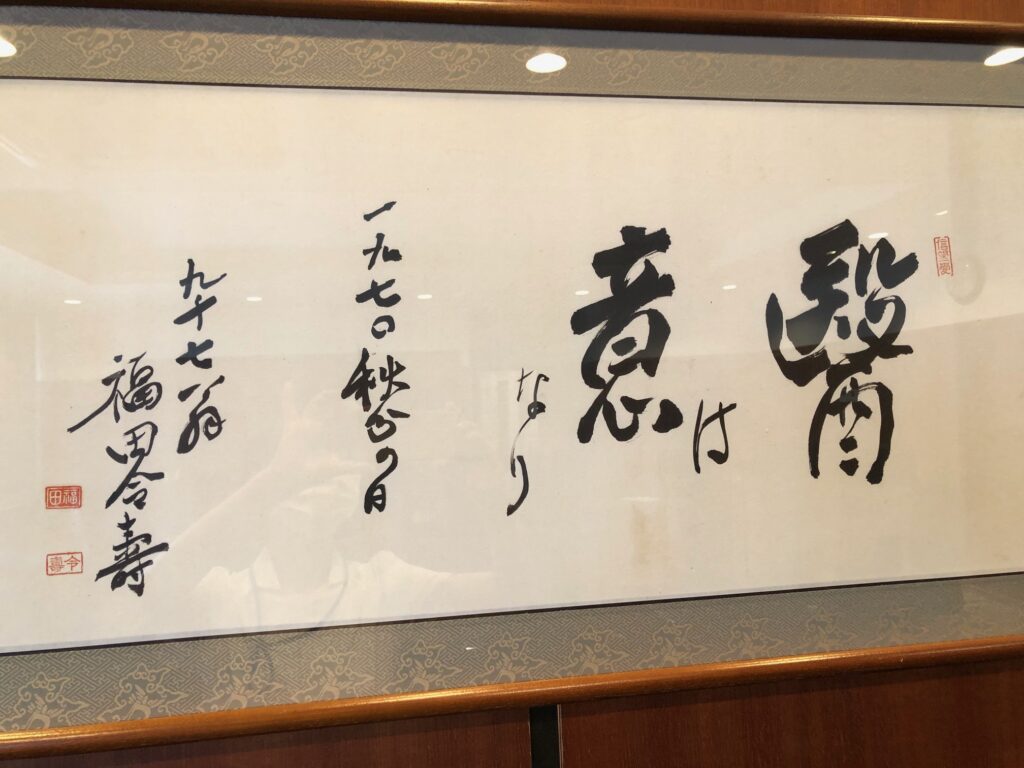 醫
は
意
なり
一九七〇秋分の日
九十七翁
福田令壽
福田
令壽